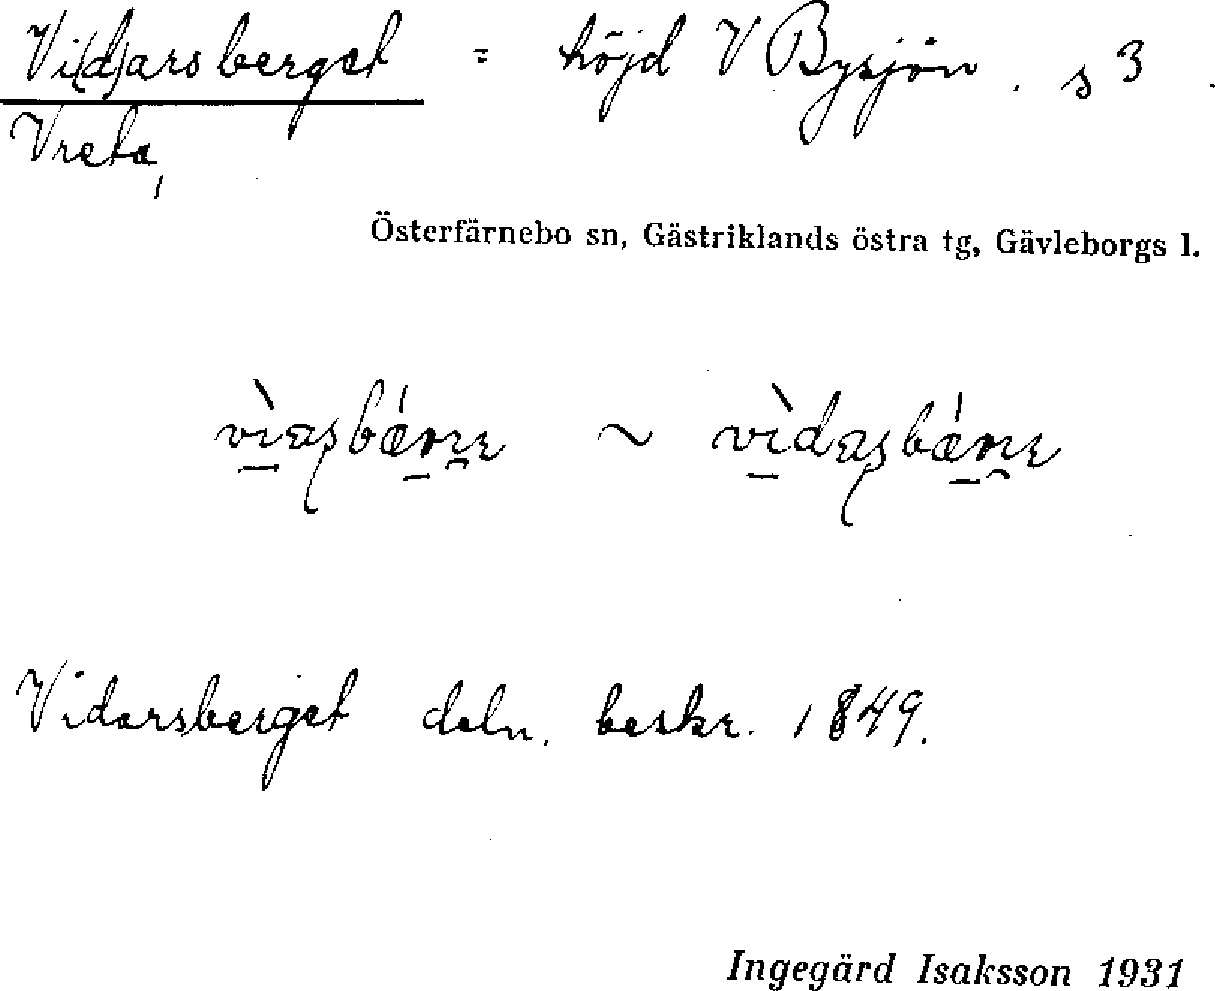 Vi(d)arsberget = höjd V Bysjön . s 3 .
Vreta,
Österfärnebo sn, Gästriklands östra tg, Gävleborgs l.
~
Vidarsberget deln. beskr. 1849.
Ingegärd Isaksson 1931